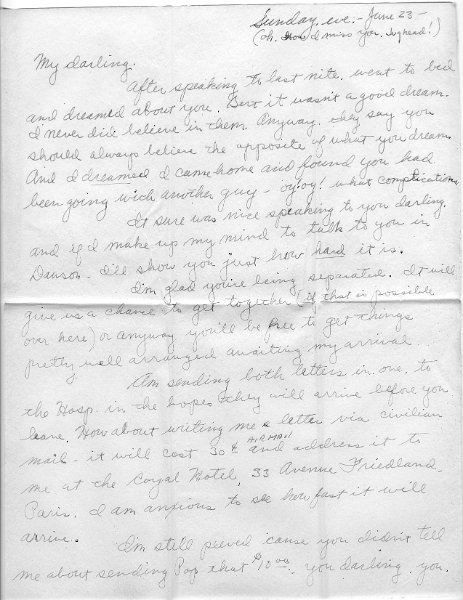 Sunday, eve. - June 23 -
(Oh, how I miss you. Ighead!)
My darling:
After speaking to last nite, went to bed
and dreamed about you. But it wasn't a good dream.
I never did believe in them. Anyway, they say you
should always believe the opposite of what you dream.
And I dreamed I came home and found you had
been going with another guy - oy, oy! what complications
It sure was nice speaking to you darling,
and if I'd make up my mind to talk to you in
Dawson - I'll show you just how hard it is.
I'm glad you're being separated. It will
give us a chance to get together (if that is possible
over here) or anyway you'll be free to get things
pretty well arranged awaiting my arrival..
Am sending both letters in one, to
the Hosp. in the hopes they will arrive before you
leave. How about writing me a letter via civilian
AIR MAIL
mail - it will cost 30¢ and address it to
me at the Royal Hotel, 33 Avenue Friedland,
Paris. I am anxious to see how fast it will
arrive.
I'm still peeved 'cause you didn't tell
me about sending Pop that $10.00. you darling, you.